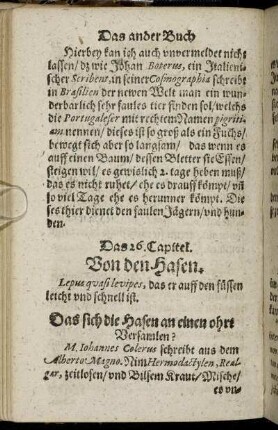 Das ander Buch
Hierbey kan ich auch unvermeldet nicht
lassen/ dz wie Johan Boterus, ein Italieni-
scher Scribent, in seiner Cosmographia schreibt
in Brasilien der newen Welt man ein wun-
derbarlich sehr faules tier finden sol/ welchs
die Portugaleser mit rechtem Namen pigriti-
am nennen/ dieses ist so groß als ein Fuchs/
bewegt sich aber so langsam/ das wenn es
auff einen Baum/ dessen Bletter sie Essen/
steigen wil/ es gewislich 2. tage heben muß/
das es nicht ruhet/ ehe es drauff kömpt/ uñ
so viel Tage ehe es herunner kömpt. Die
ses thier dienet den faulen Jägern/ und hun-
den.
Das 26. Capitel.
Von den Hasen.
Lepus quasi levipes, das er auff den füssen
leicht und schnell ist.
Das sich die Hasen an einen ohrt
Versamlen?
M. Iohannes Colerus schreibt aus dem
Alberto Magno. Nim Hermodactylen, Real-
gar, zeitlosen/ und Bilsem Kraut/ Mische/
es un-